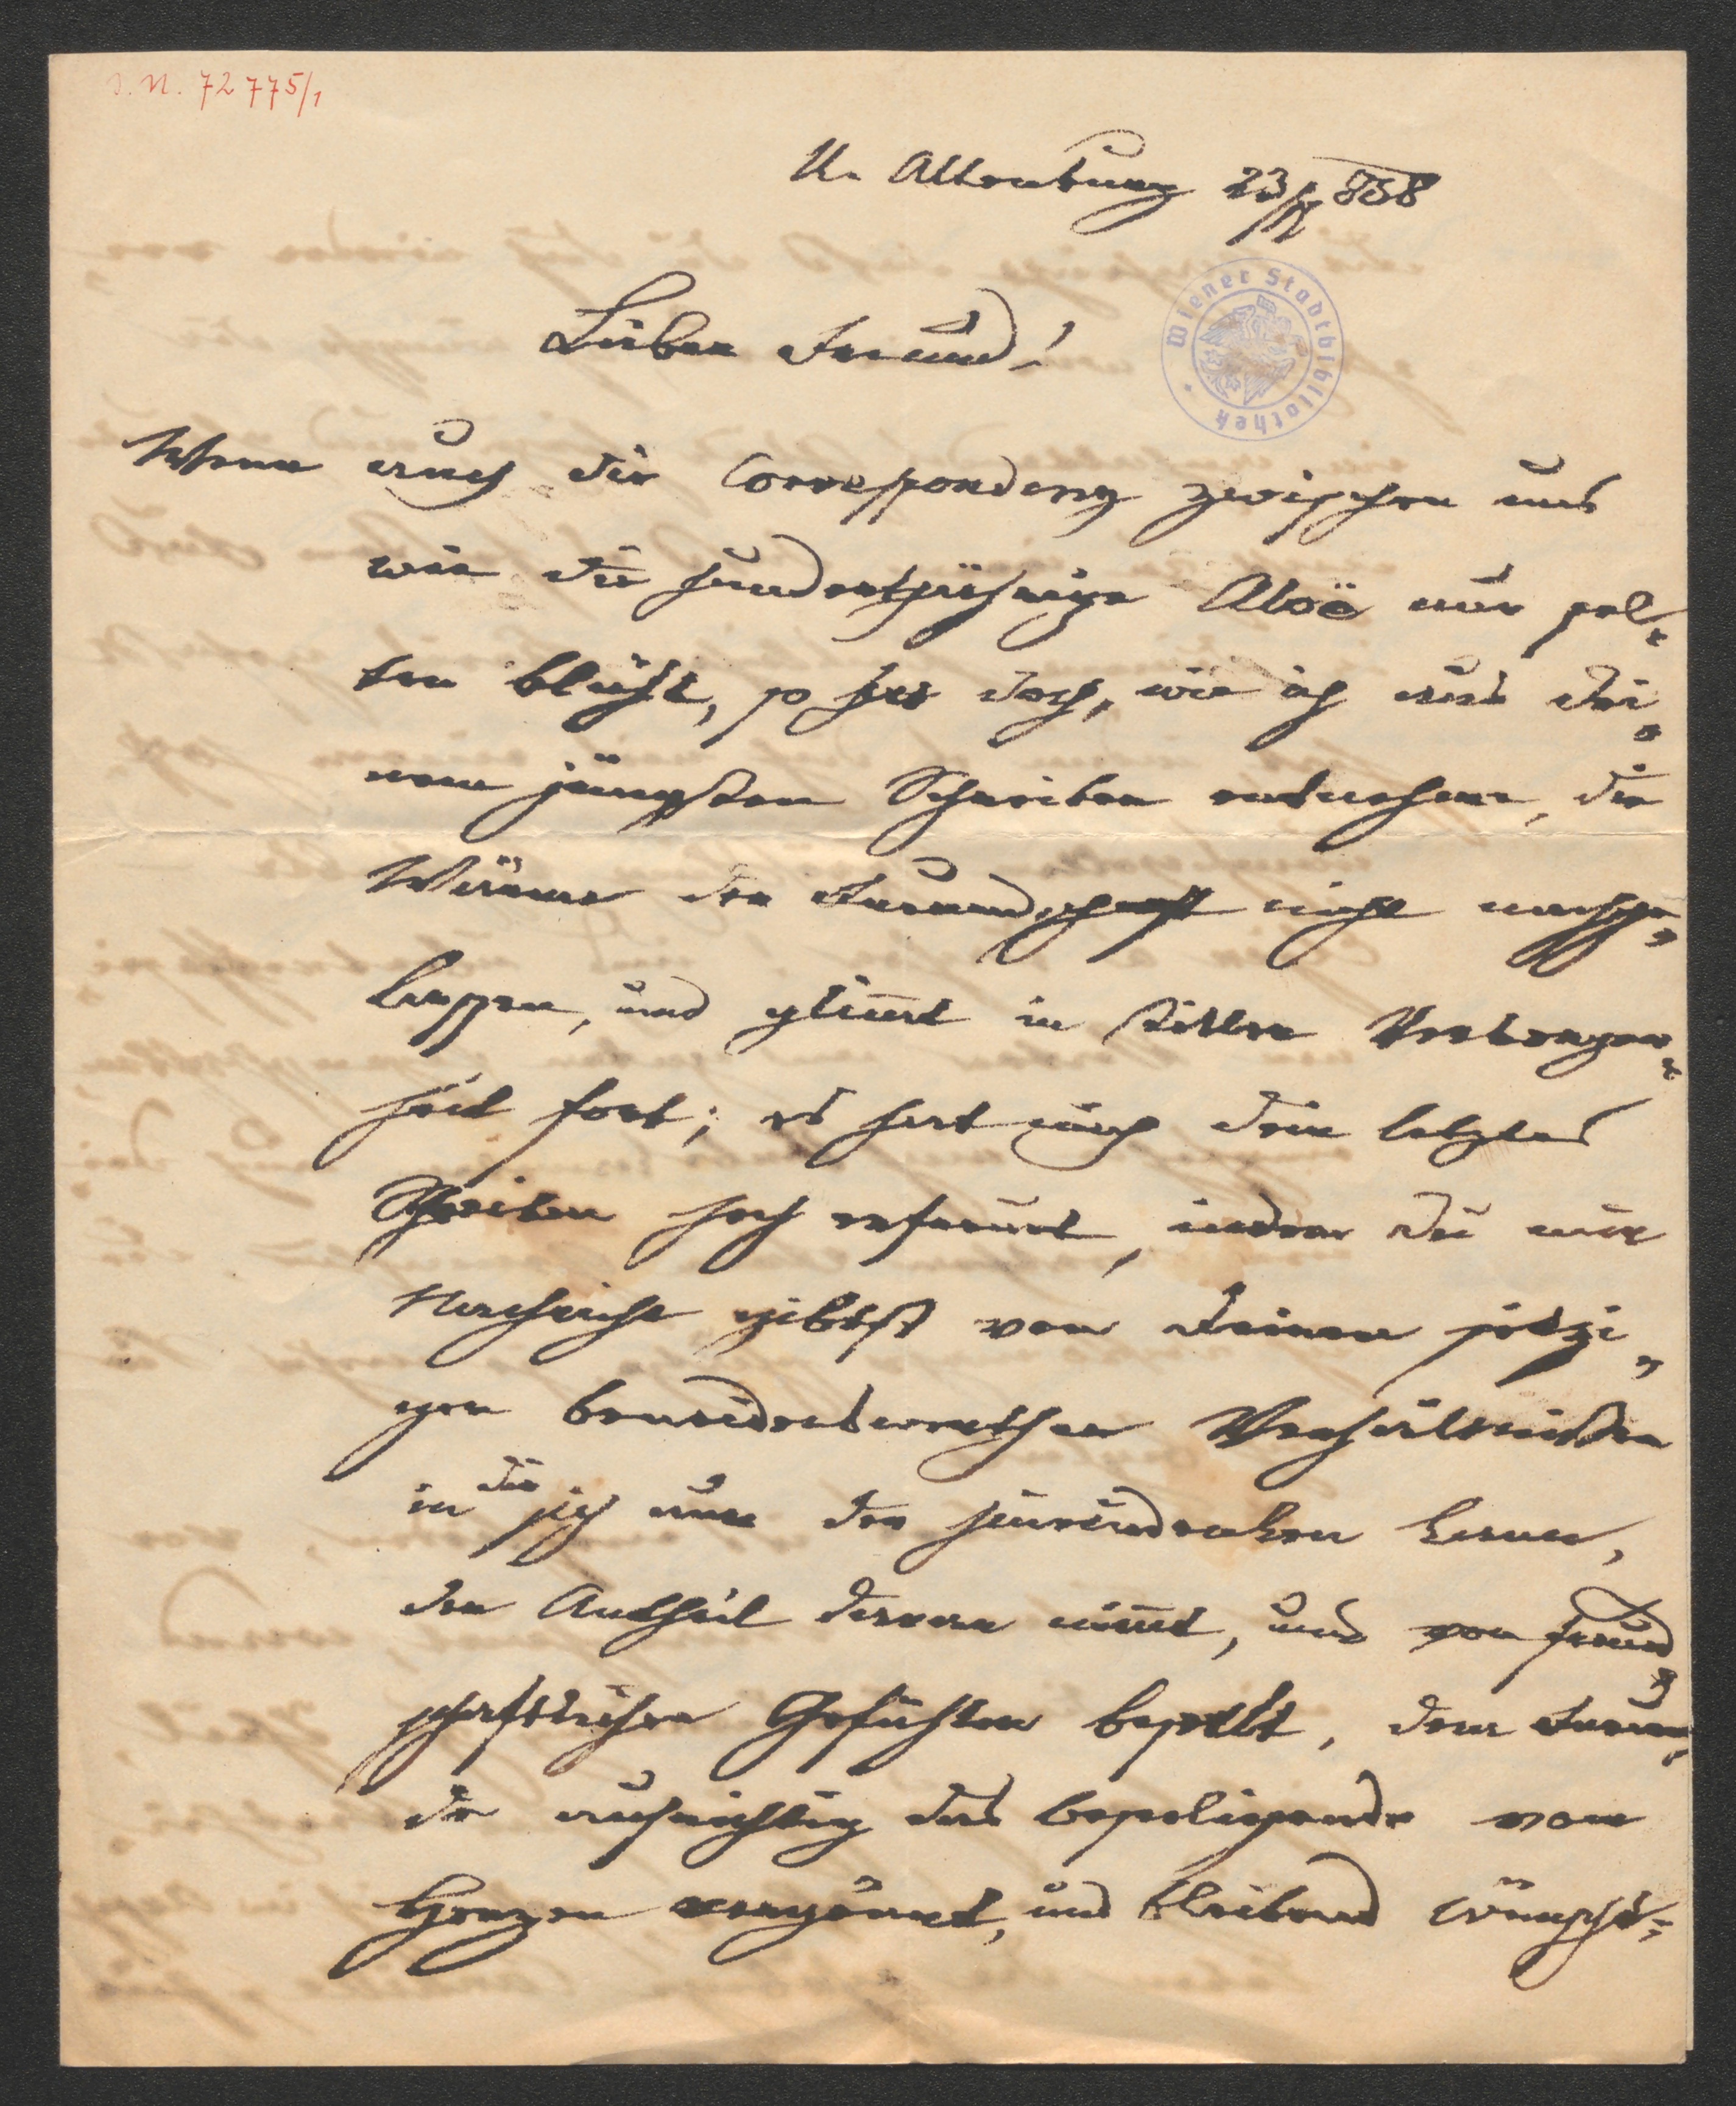 I. N. 72775/1
U. Altenburg 23/X 858
Wiener Stadtbibliothek
Lieber Freund!
Wenn auch die Correspondenz zwischen uns
wie die hundertjährige Aloë nur sel=
ten blüht, so hat doch, wie ich aus Dei=
nem jüngsten Schreiben entnehme, die
Wärme der Freundschaft nicht nachge=
lassen, und glimt in stiller Verborgen=
heit fort; es hat mich dein letztes
Schreiben hoch erfreut, indem du mir
Nachricht gibst von Deinen jetzi=
gen beneidenswerthen Verhältnißen
in die sich nur der hineindenken kann,
der Antheil daran nimt, und von freund=
schaftlichen Gefühlen beseelt, dem Freun=
de aufrichtig das beseligende von
Herzen vergönnt, und bleibend wünscht=